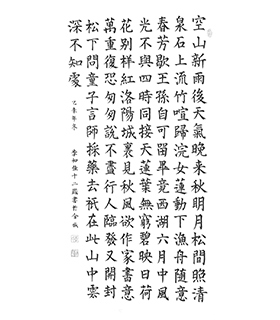 空山新雨後天氣晚來秋明月松間照清
泉石上流竹喧歸浣女蓮動下漁舟隨意
春芳歇王孫自可留畢竟西湖六月中風
光不與四時同接天蓮葉無窮碧映日荷
花別樣紅洛陽城裏見秋風欲作家書意
萬重復恐匆匆說不盡行人臨發又開封
松下問童子言師採藥去祇在此山中雲
深不知處
乙未年冬
十二歲書於